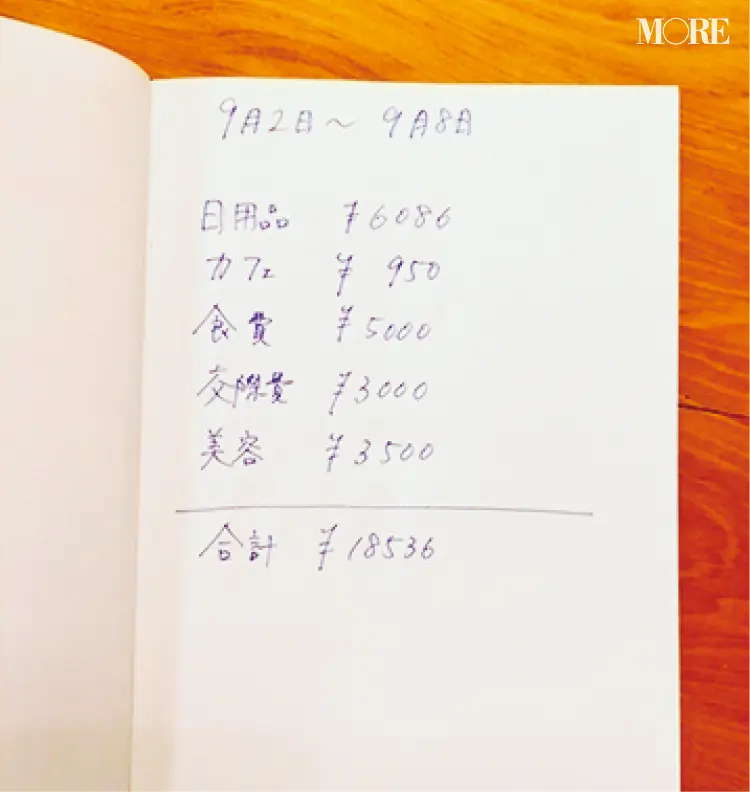 MORE
9月2日〜9月8日
日用品 ¥6086
カフェ ¥950
食費 ¥5000
交際費 ¥3000
美容 ¥3500
合計 ¥18536